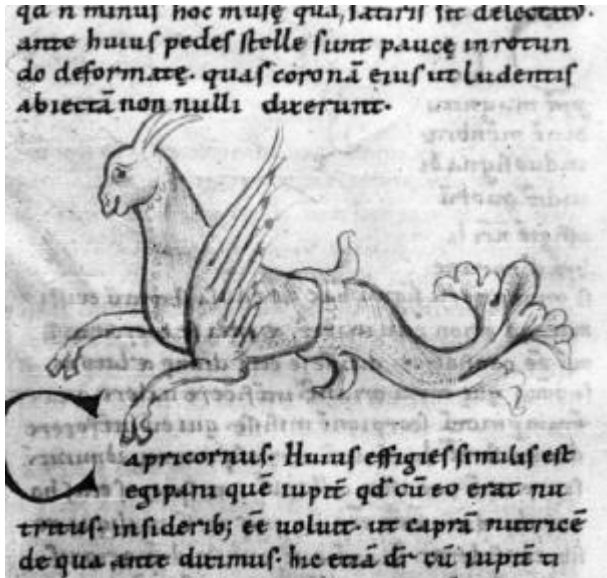 qd n minus hoc musę qua, satiris sit delectatv.
ante huius pedes stelle sunt paucę in rotun
do deformatę. quas coronā eius ut ludentis
abiectā non nulli dixerunt.
Capricornus. Huius effigies similis est
egipani quē iupit̄ qd cū eo erat nu
tritus. insiderib; ēē uoluit. ut caprā nutricē
de qua ante diximus. hic etiā dr̄ cū iupit̄ ti